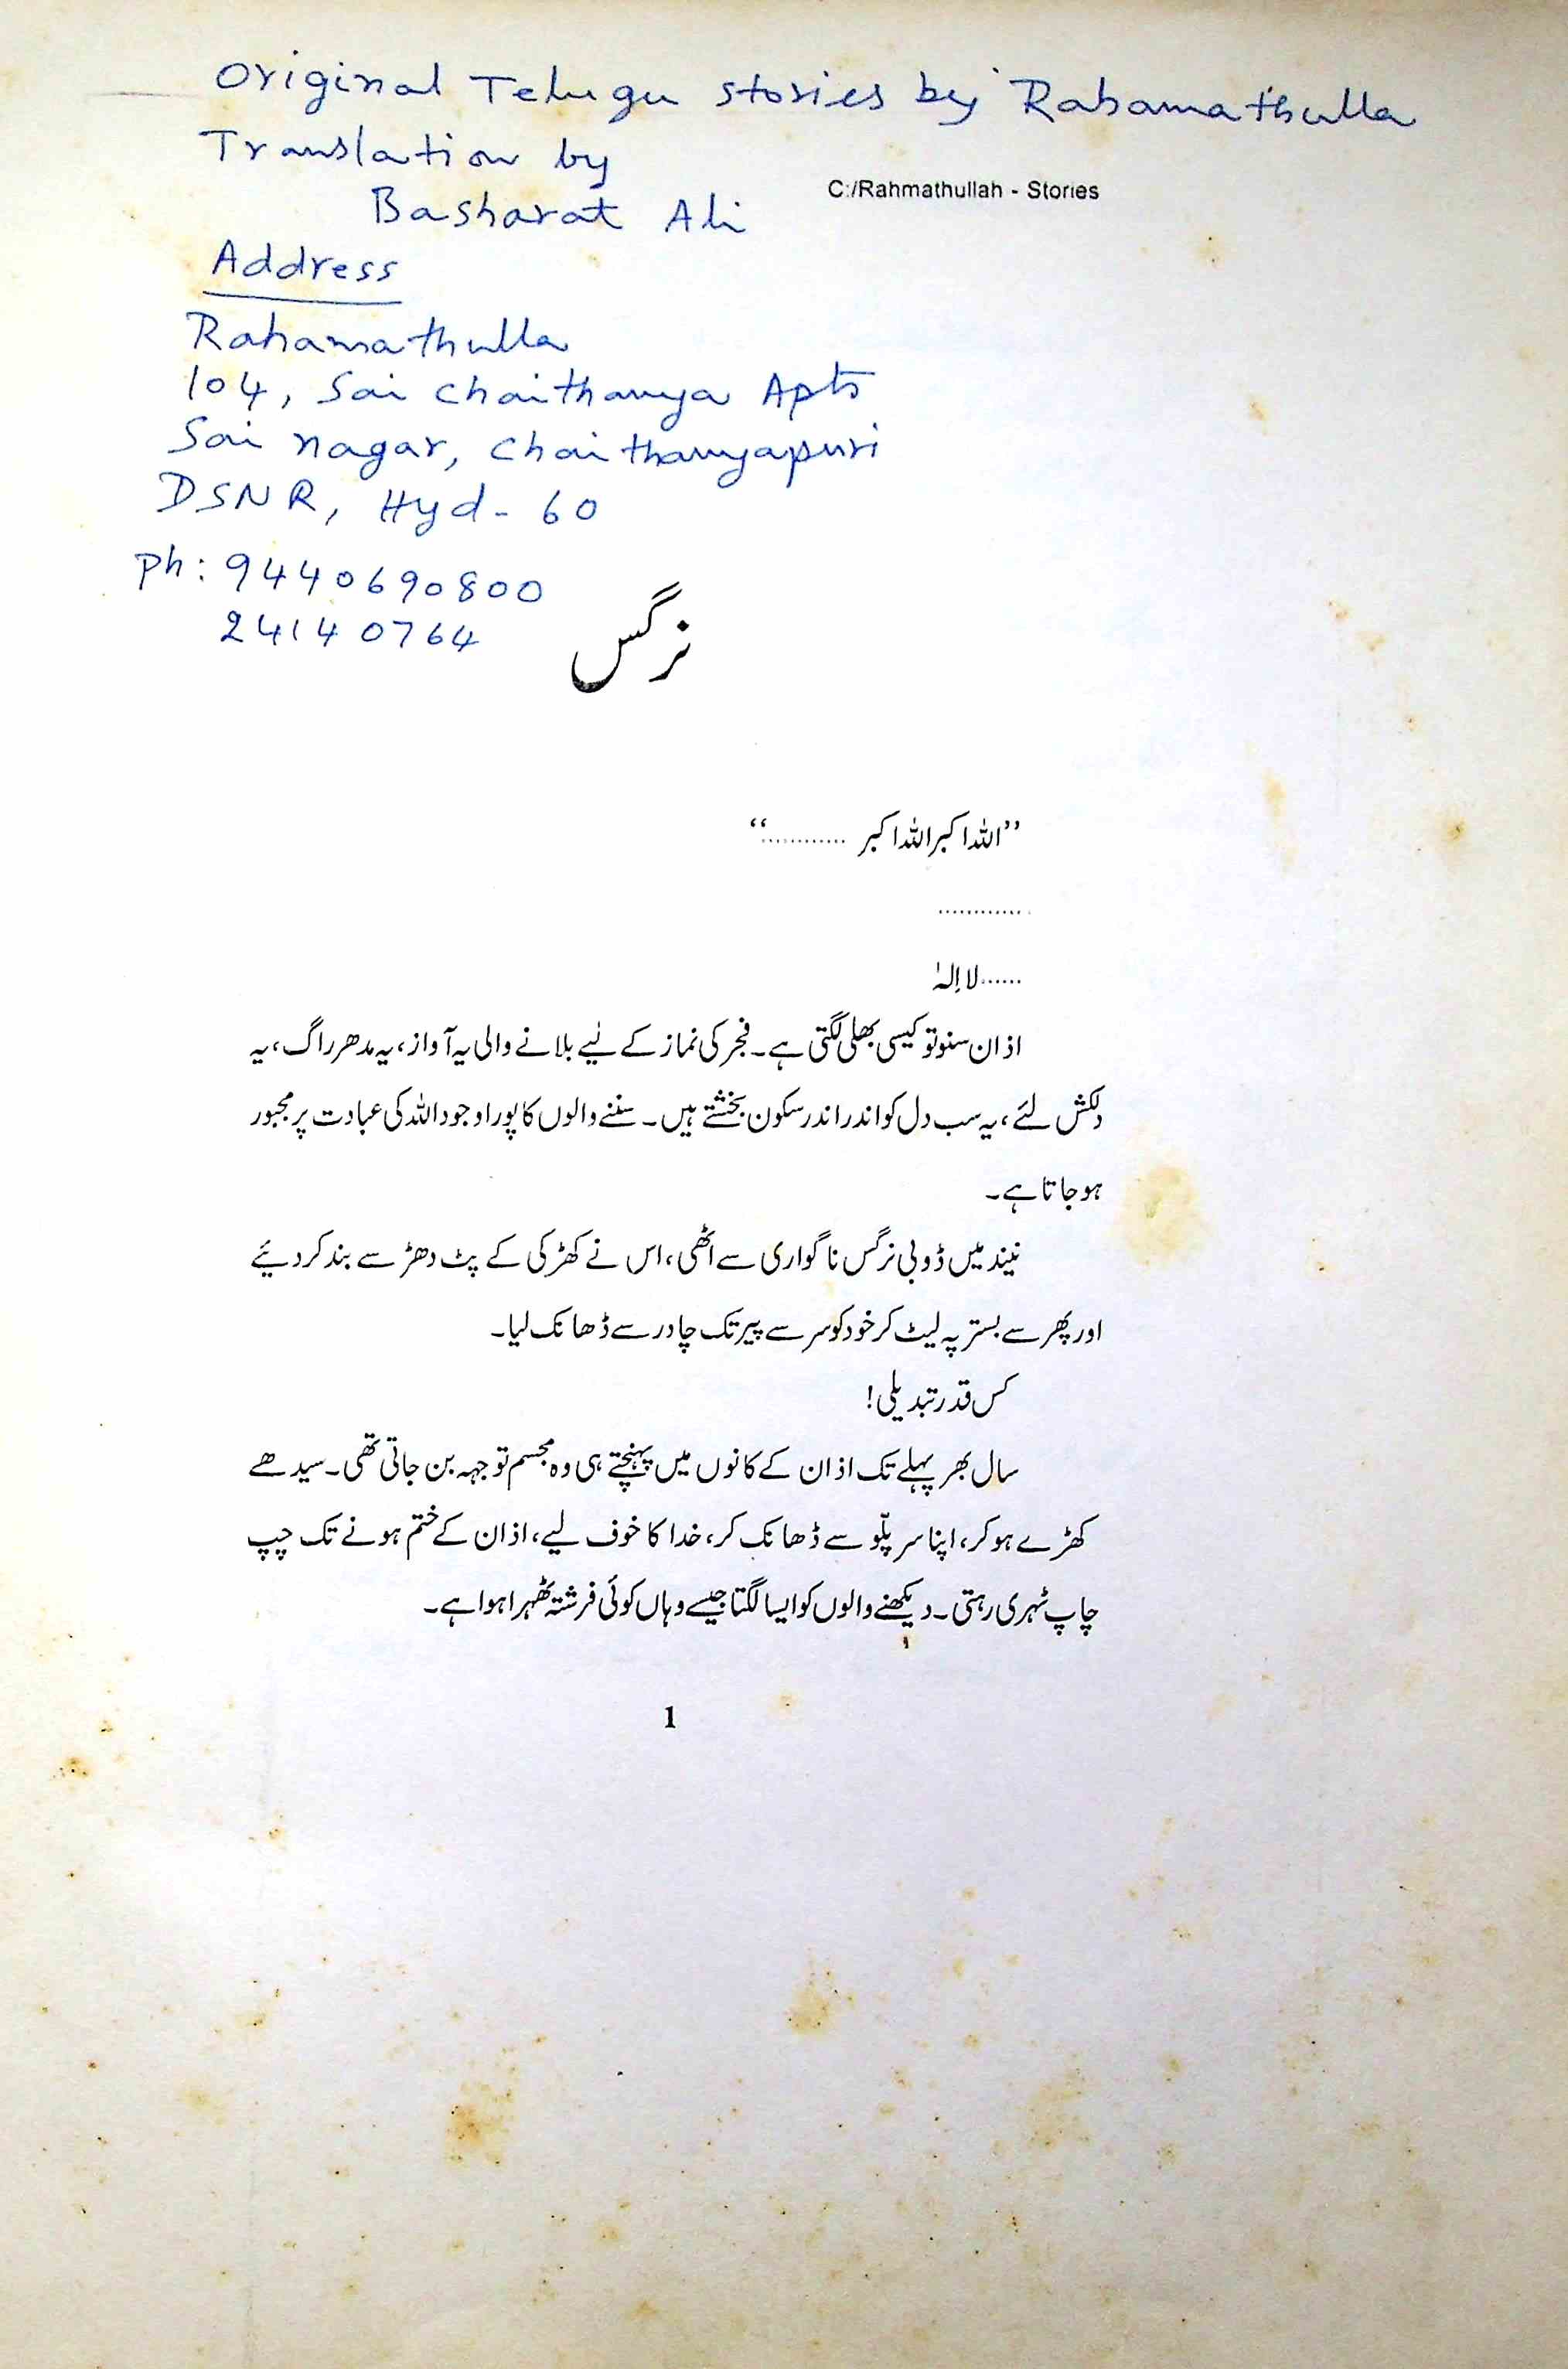 Original Telugu stories by Rahamathulla
Translation by
Basharat Ali
C:/Rahmathullah - Stories
Address
Rahamathulla
104, Sai Chaithanya Apts
Sai nagar, Chaithanyapuri
DSNR, Hyd - 60
Ph: 9440690800
24140764
نرگس
”اللہ اکبر اللہ اکبر ............“
............
......لا إلہٰ
اذان سنو تو کیسی بھلی لگتی ہے۔ فجر کی نماز کے لیے بلانے والی یہ آواز، یہ مدھر راگ، یہ
دلکش لئے، یہ سب دل کو اندر اندر سکون بخشتے ہیں۔ سننے والوں کا پورا وجود اللہ کی عبادت پر مجبور
ہو جاتا ہے۔
نیند میں ڈوبی نرگس ناگواری سے اٹھی، اس نے کھڑکی کے پٹ دھڑ سے بند کر دئیے
اور پھر سے بستر پہ لیٹ کر خود کو سر سے پیر تک چادر سے ڈھانک لیا۔
کس قدر تبدیلی!
سال بھر پہلے تک اذان کے کانوں میں پہنچتے ہی وہ مجسم توجہہ بن جاتی تھی۔ سیدھے
کھڑے ہو کر، اپنا سر پلّو سے ڈھانک کر، خدا کا خوف لیے، اذان کے ختم ہونے تک چپ
چاپ ٹہری رہتی۔ دیکھنے والوں کو ایسا لگتا جیسے وہاں کوئی فرشتہ ٹھہرا ہوا ہے۔
1